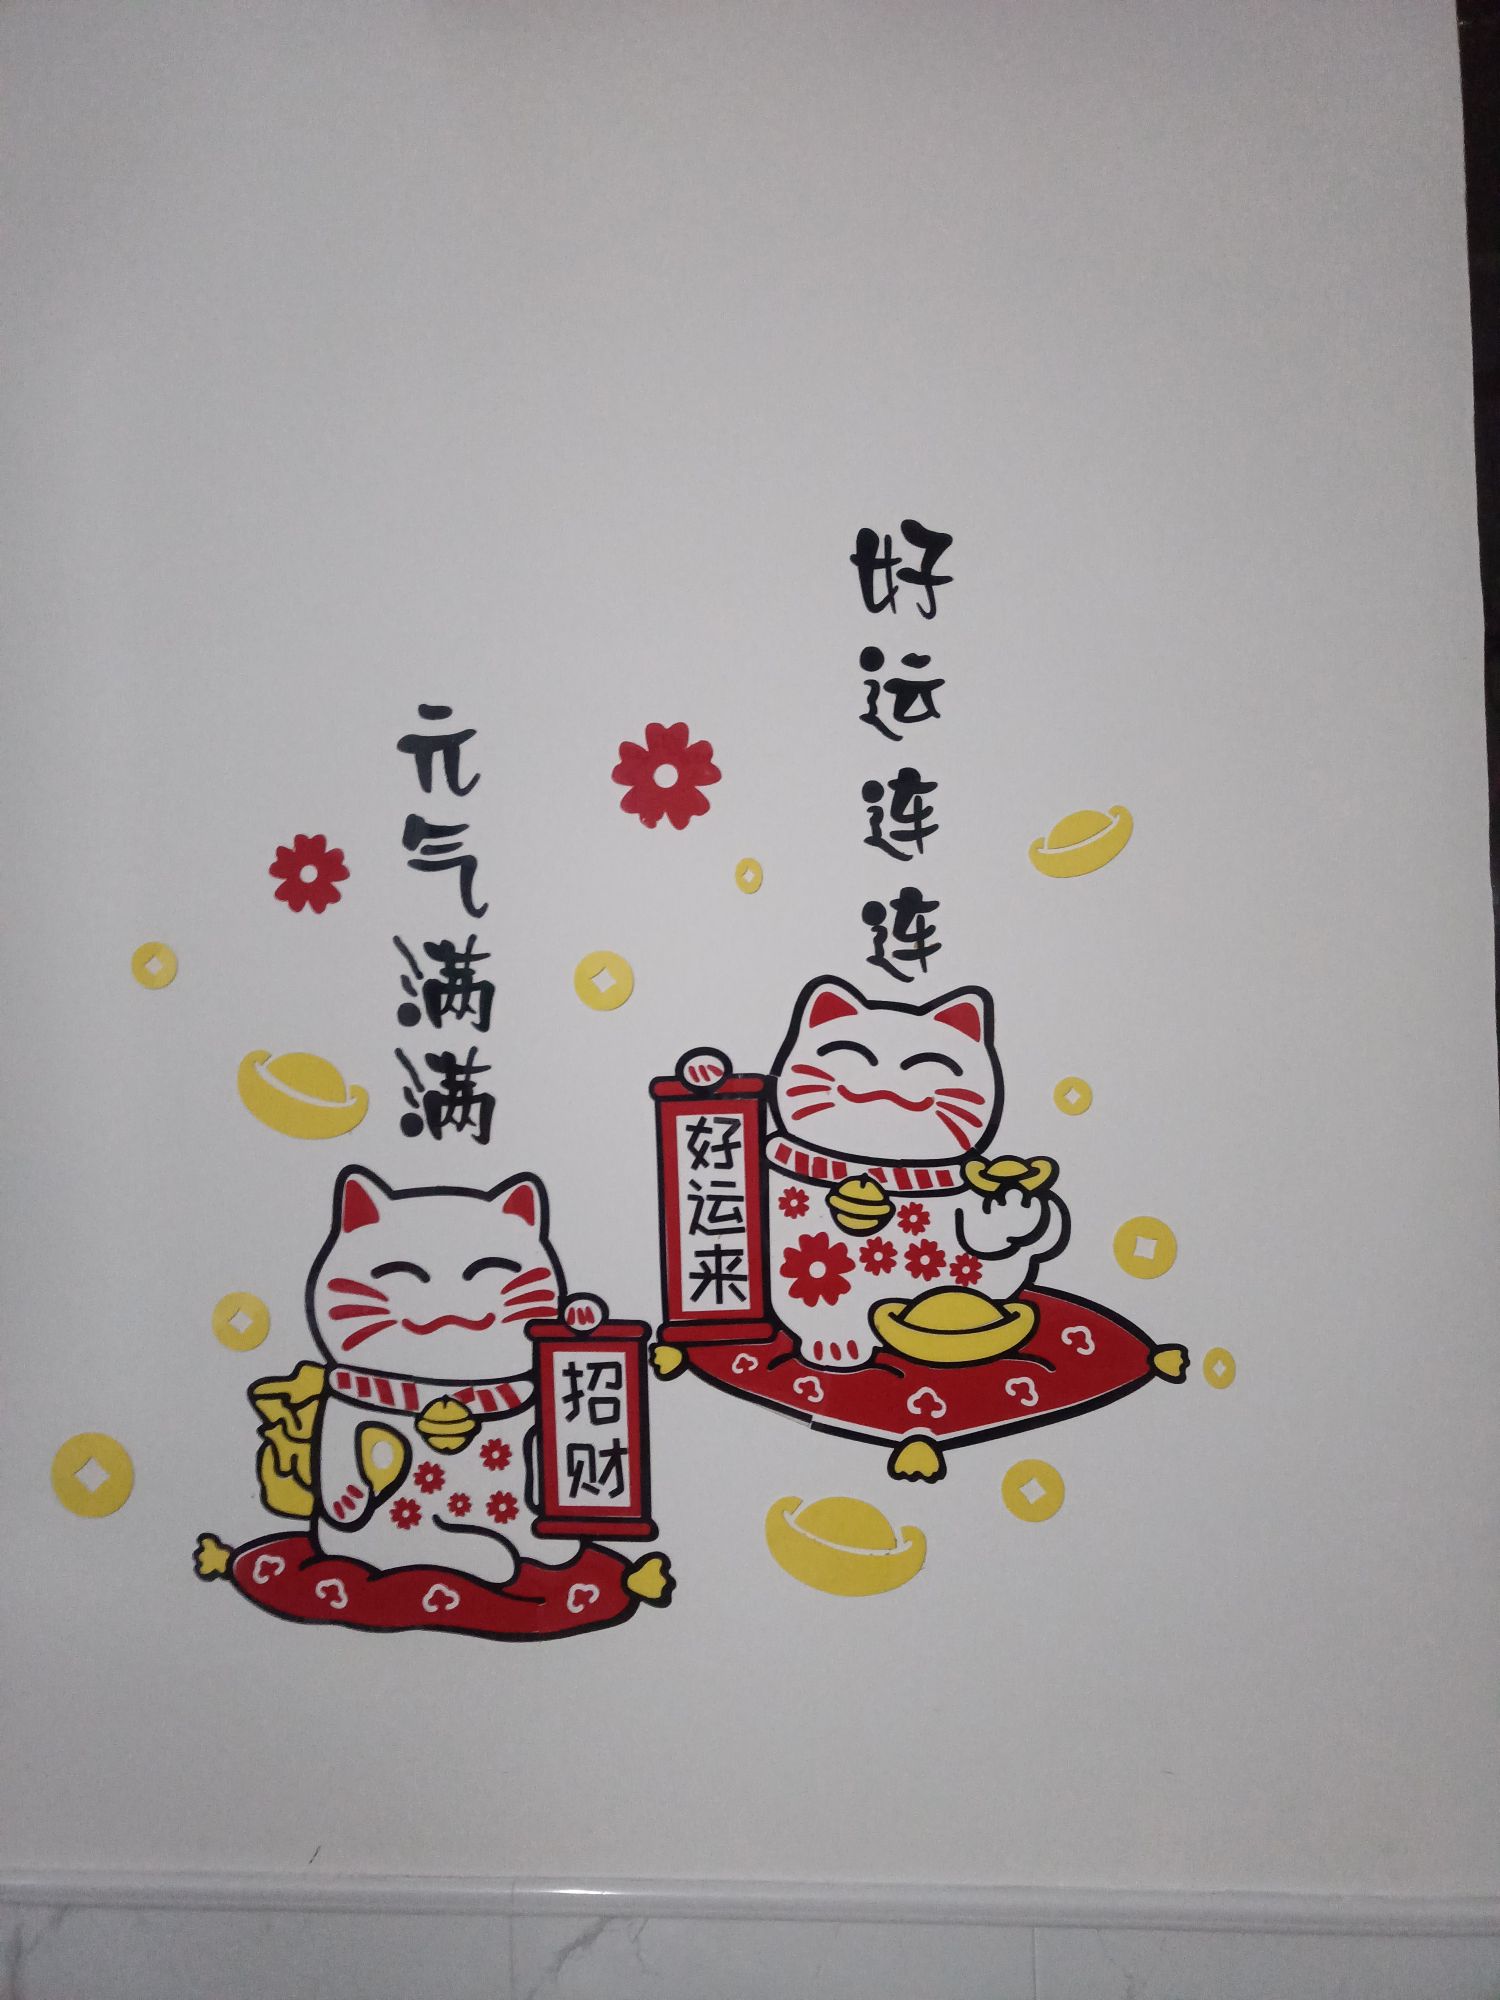 好运连连
元气满满
好运来
招财